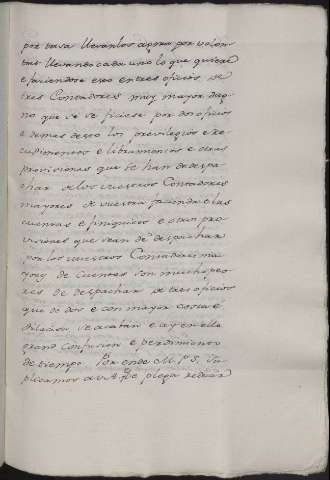 por tasa llevanlos agora por volun-
tas llevando cada uno lo que quiere
e faciendose eso en tres oficios de
tres Contadores muy mayor dag-
no que si se ficiese por dos oficios
e demas deso los previlegios e re-
cudimentos e libramientos e otras
provisiones que se han de despa-
char de los vuestros Contadores
mayores de vuestra facienda e las
cuentas e finiquitos e otras pro-
visiones que sean de despachar
por los vuestros Contadores ma-
yores de Cuentas son mucho peo-
res de despachar de tres oficios
que de dos e con mayor costa e
dilacion se acaban e ay en ello
grand confusion e perdimiento
de tiempo. Por ende M. P. S. Su-
plicamos a V. A. que plega reducir